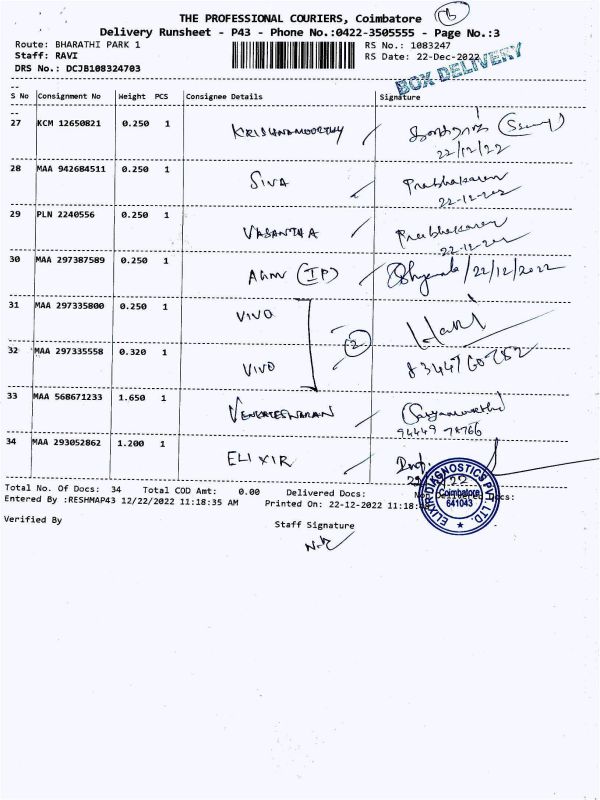 THE PROFESSIONAL COURIERS, Coimbatore
Delivery Runsheet - P43 - Phone No.:0422-3505555 - Page No.:3
Route: BHARATHI PARK 1 RS No.: 1083247
Staff: RAVI RS Date: 22-Dec-2022
DRS No.: DCJB108324703
BOX DELIVERY
S No Consignment No Weight PCS Consignee Details Signature
27 KCM 12650821 0.250 1 KRISHNAMOORTHY
22/12/22
28 MAA 942684511 0.250 1 SIVA Prabhakaran
22-12-202
29 PLN 2240556 0.250 1 VASANTHA Prabhakaran
22-12-202
30 MAA 297387589 0.250 1 (IP) /22/12/2022
31 MAA 297335800 0.250 1 VIVO Hari
2
32 MAA 297335558 0.320 1 VIVO
33 MAA 568671233 1.650 1 VENKATESWARAN
34 MAA 293052862 1.200 1 ELIXIR
Total No. Of Docs: 34 Total COD Amt: 0.00 Delivered Docs: Docs:
Entered By :RESHMAP43 12/22/2022 11:18:35 AM Printed On: 22-12-2022 11:18:
Verified By
Staff Signature
ELIXIR DIAGNOSTICS PVT. LTD.
Coimbatore
641043